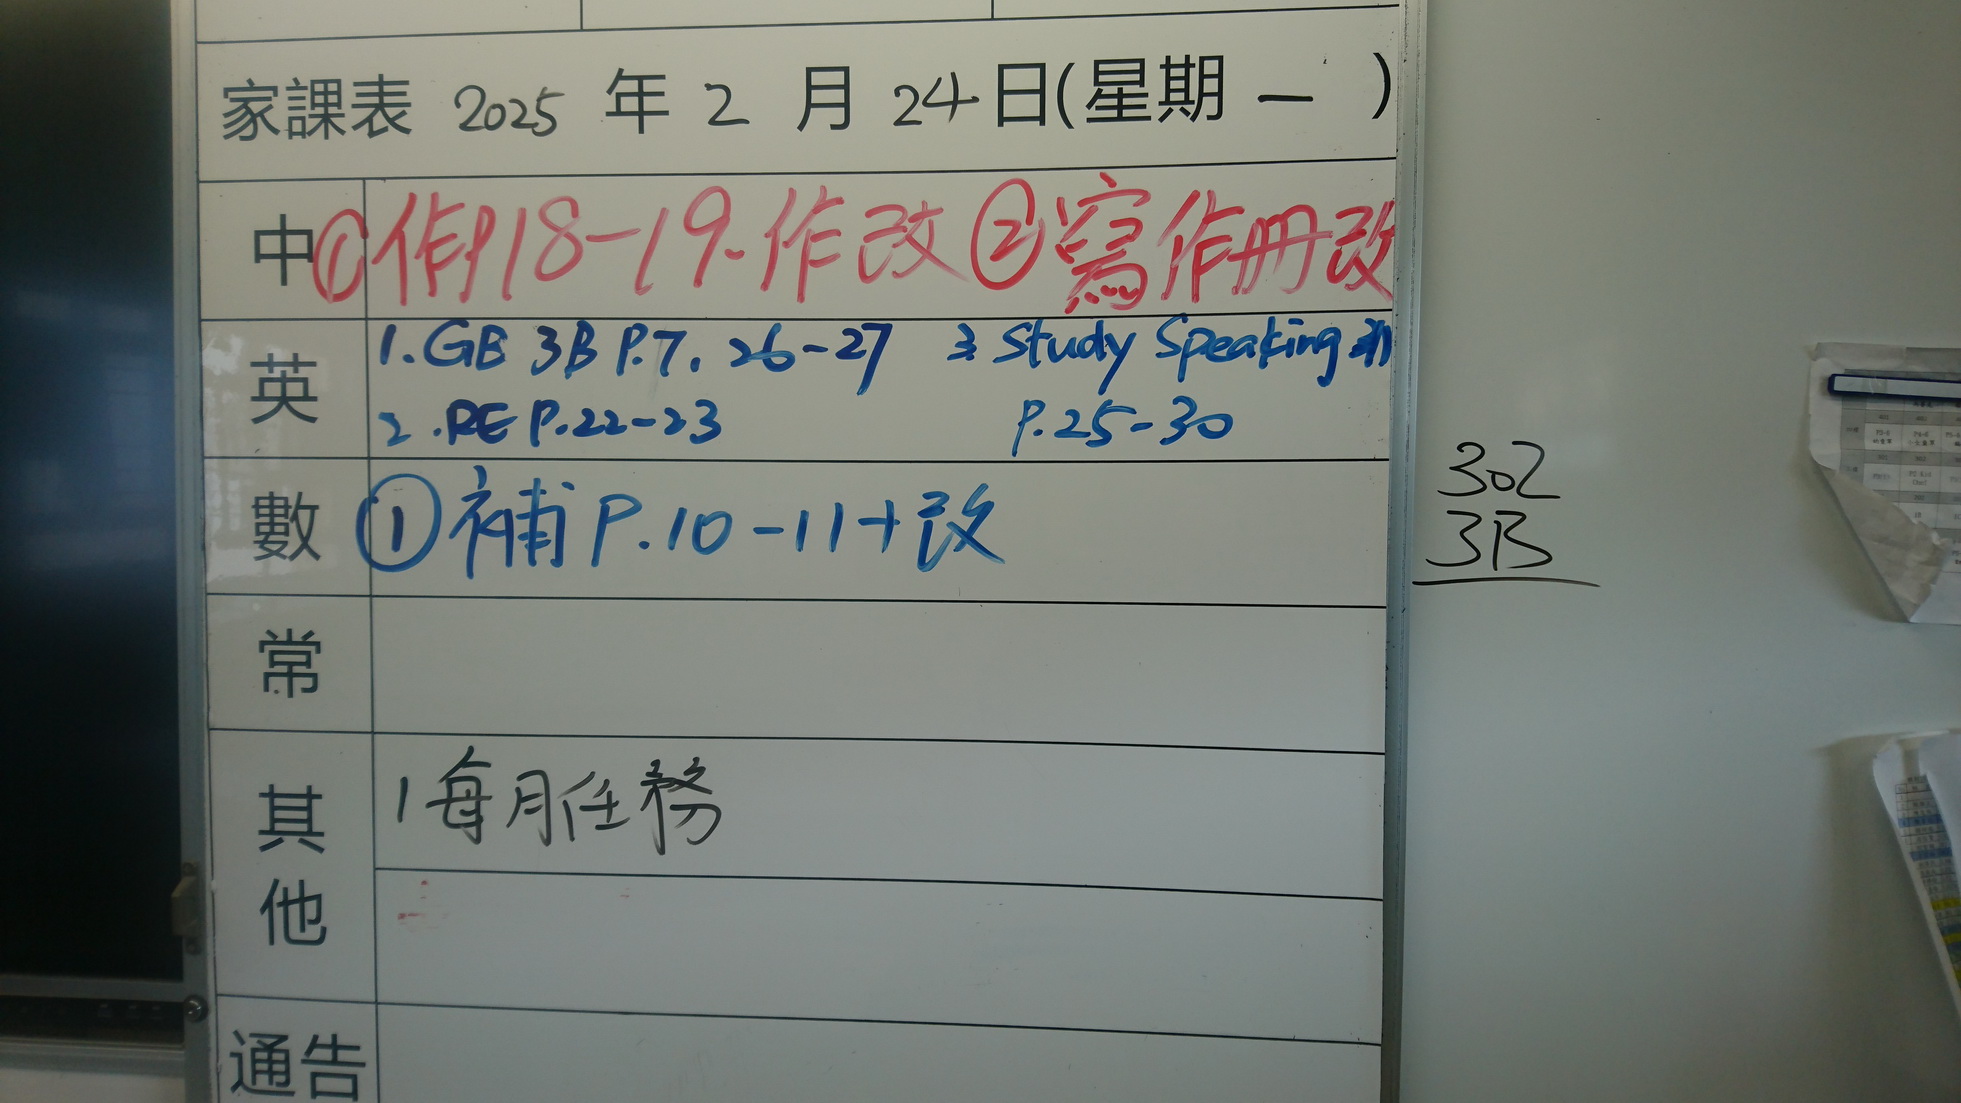 家課表 2025 年 2 月 24 日(星期 一 )
中 ① 作P18-19.作改 ② 寫作冊改
英 1. GB 3B P.7, 26-27 3. Study Speaking 冊
2. RE P.22-23 P.25-30
數 ① 補 P.10-11+改
302
3B
常
其他 1 每月任務
通告